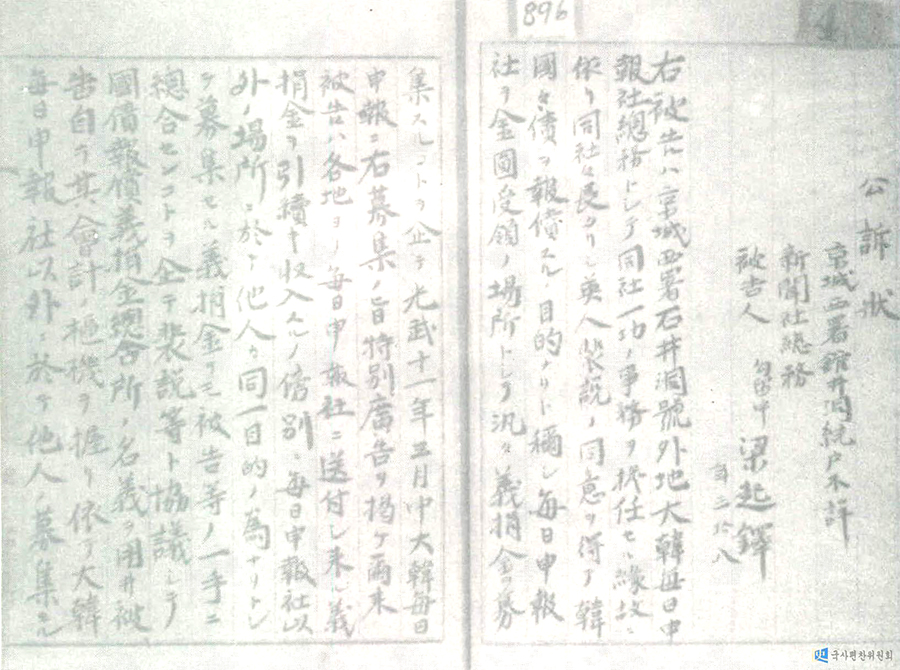 896
公訴狀
京城西署石井洞統戶不詳
新聞社總務
被告人 勾留中 梁起鐸
年三十八
右被告ハ京城西署石井洞號外地大韓每日申
報社總務トシテ同社一切ノ事務ヲ擔任セル緣故ニ
依リ同社々長タリシ英人裴說ノ同意ヲ得テ韓
國々債ヲ報償スル目的ナリト稱シ每日申報
社ヲ金圓受領ノ場所トシテ汎ク義捐金ヲ募
集スルコトヲ企テ光武十一年 月中大韓每日
申報ニ右募集ノ旨特別廣告ヲ揭ケ爾來
被告ハ各地ヨリ每日申報社ニ送付シ來ル義
捐金ヲ引續キ收入スルノ傍別ニ每日申報社以
外ノ場所ニ於テ他人カ同一目的ノ爲ナリトシ
テ募集セル義捐金ヲモ被告等ノ一手ニ
總合センコトヲ企テ裴說等ト協議シテ
國債報償義捐金總合所ノ名義ヲ用ヰ被
告自ラ其會計ノ樞機ヲ握リ依テ大韓
每日申報社以外ニ於テ他人ノ募集セル
국사편찬위원회